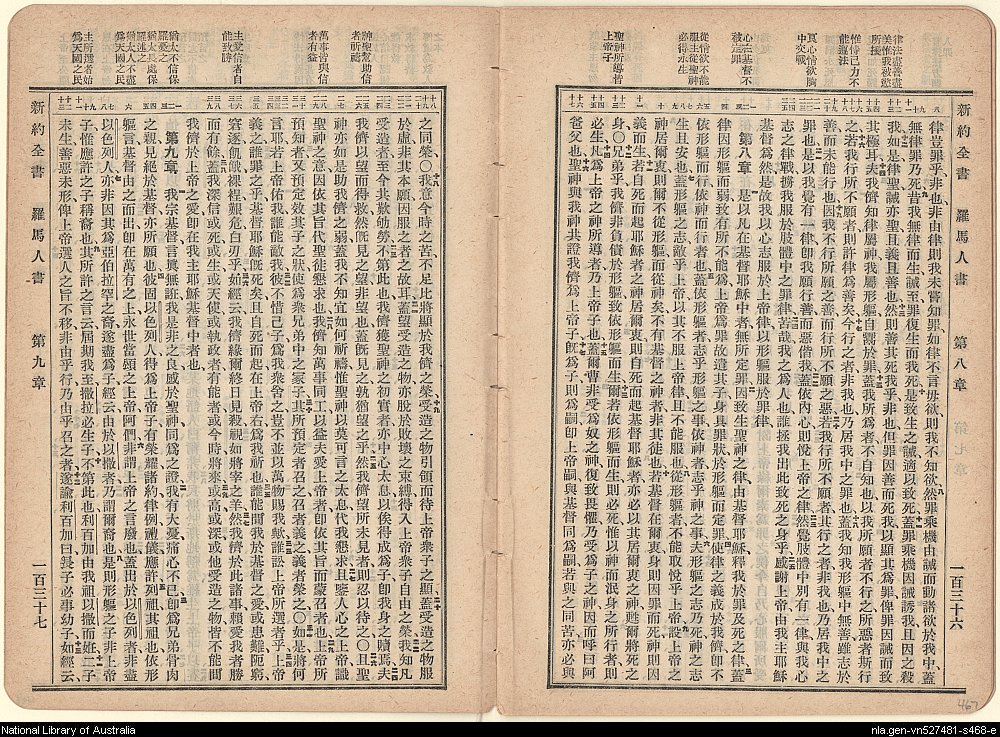 新約全書 羅馬人書 第八章 一百三十六
律法盡善盡
美惟我被慾
所援
惟恃己力不
能légal法
良心情欲胸
中交戰
心在基督不
被定罪
從情欲不能
服主從聖神
必得永生
聖神所導者
上帝子
律豈罪乎非也非由律則我未嘗知罪如律不言毋欲則我不知欲然罪乘機由誡而動諸欲於我中蓋
無律罪乃死昔我無律而生誡至罪復生而我死是致生之誡適以致死蓋罪乘機因誡誘我且因之殺
我如是律聖誡亦聖且義且善也然則善其死我乎非也但罪因善而死我以顯其為罪俾罪因誡而致
其極耳夫我儕知律屬神我屬形軀自鬻於罪蓋我所為者不自知也以我所願者不行之所惡者斯行
之若我行所不願者則許律為善矣今行之者非我也乃居我中之罪也蓋我知我形軀中無善雖志於
善而未能行也因我不行所願之善而行所不願之惡若我行所不願者其行之者非我也乃居我中之
罪也是以我覺有一律即我願行善而惡偕我蓋依內心則悅上帝之律然覺肢體中別有一律與我心
志之律戰擄我服於肢體中之罪律苦哉我之為人也誰拯我出此致死之身乎感謝上帝由我主耶穌
基督為然是故我以心志服於上帝律以形軀服於罪律
第八章 是以凡在基督耶穌中者無所定罪因致生聖神之律由基督耶穌釋我於罪及死之律蓋
律因形軀而弱致有所不能為上帝緣罪故遣其子身具罪狀於形軀而定罪使律之義成於我儕即不
依形軀而行依神而行者也蓋依形軀者志乎形軀之事依神者志乎神之事夫形軀之志乃死神之志
生且安也蓋形軀之志敵乎上帝以其不服上帝律且不能服也從形軀者不能取悅乎上帝設上帝之
神居爾衷則爾不從形軀而從神矣不有基督之神者非其徒也若基督在爾衷身則因罪而死神則因
義而生若自死而起耶穌者之神居爾衷則自死而起基督耶穌者亦必以其居爾衷之神甦爾將死之
身〇兄弟乎我儕非負債於形軀致依形軀而生爾若依形軀而生則必死惟以神而泯身之所行者則
必生凡為上帝之神所導者乃上帝子也蓋爾曹非受為奴之神復致畏懼乃受為子之神因而呼曰阿
爸父也聖神與我神共證我儕為上帝子既為子則為嗣即上帝嗣與基督同為嗣若與之同苦亦必與
467
新約全書 羅馬人書 第九章 一百三十七
神聖幫助信
者祈禱
萬事皆與信
者有益
主愛信者自
能致勝
猶太不信保
羅憂之
猶太長處保
羅述之
猶太人不盡
為天國之民
主所選者始
為天國之民
之同榮〇我思今時之苦不足比將顯於我儕之榮受造之物引領而待上帝眾子之顯蓋受造之物服
於虛非其本願因服之者之故耳蓋望受造之物亦脫於敗壞之束縛得入上帝眾子自由之榮我知凡
受造者至今共歎劬勞不第此也我儕獲聖神之初實者亦中心太息以俟得成為子即我身之贖焉夫
我儕以望而得救然既見之望非望也蓋既見之孰猶望之乎然我儕望所未見者則忍以待之〇且聖
神亦如是助我儕之弱蓋我不知宜如何祈禱惟聖神以莫可言之太息代我懇求且鑒人心之上帝識
聖神之意因依其旨代聖徒懇求也我儕知萬事同工以益夫愛上帝者即依其旨而蒙召者也上帝所
預知者又預定效其子之狀使為眾兄弟中之冢子其所預定者召之召者義之義者榮之〇如是將何
言耶若上帝佑我誰能敵我彼不惜己子為我眾舍之豈不並以萬物賜我歟誰訟上帝所選者乎上帝
義之誰罪之乎基督耶穌既死矣且自死而起在上帝右為我祈也誰能間我於基督之愛或患難阨窮
窘逐飢餓裸裎艱危白刃乎如經云我儕緣爾終日見殺視如將宰之羊然我儕於此諸事賴愛我者勝
而有餘蓋我深信或死或生或天使或執政者有能者或今時將來或高或深或他受造之物皆不能間
我儕於上帝之愛即在我主耶穌基督中者也
第九章 我宗基督言眞無誑我是非之良感於聖神同為之證我有大憂痛心不已即為兄弟骨肉
之親己見絕於基督亦所願也彼固以色列人得為上帝子有榮耀諸約律例禮儀應許列祖其祖也依形
軀言基督由之而出即在萬有之上永世當頌之上帝阿們非謂上帝之言廢也蓋出於以色列者非盡
以色列人亦非因其為亞伯拉罕之裔遂盡為子經云由於以撒者乃謂爾裔也是則形軀之子非上帝
子惟應許之子稱裔也其所許之言云屆期我至撒拉必生子不第此也利百加由我祖以撒而妊二子
未生善惡未形俾上帝選人之旨不移非由乎行乃由乎召之者遂諭利百加曰長子必事幼子如經云
National Library of Australia
nla.gen-vn527481-s468-e